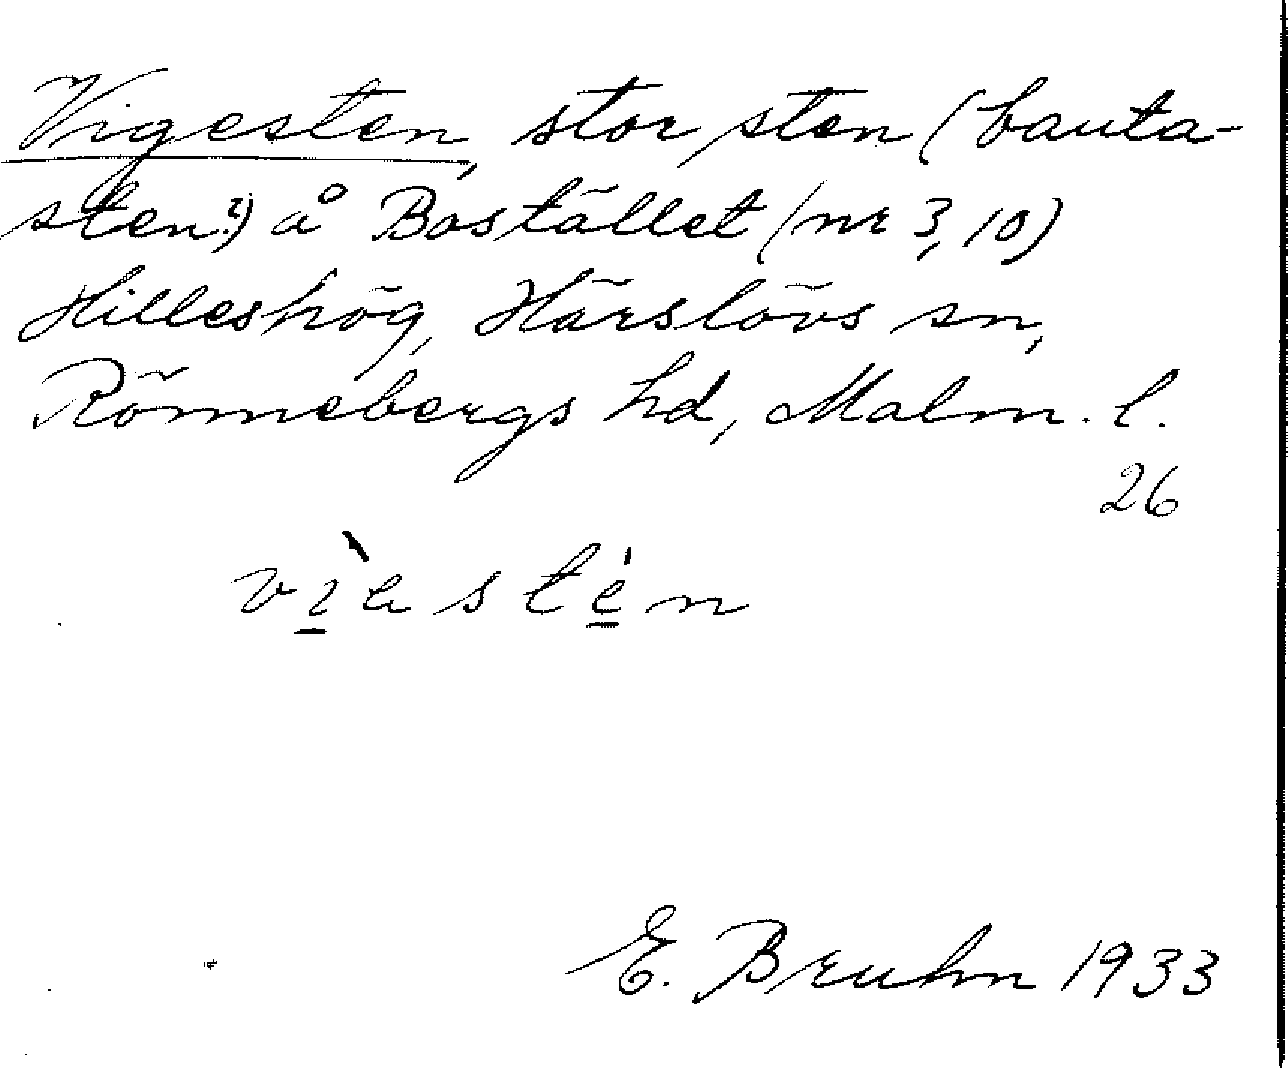 Vigesten, stor sten (bauta-
sten?) å Bostället (nr 3, 10)
Hilleshög, Härslövs sn,
Rönnebergs hd, Malm. l.
26
vìastén
E. Bruhn 1933